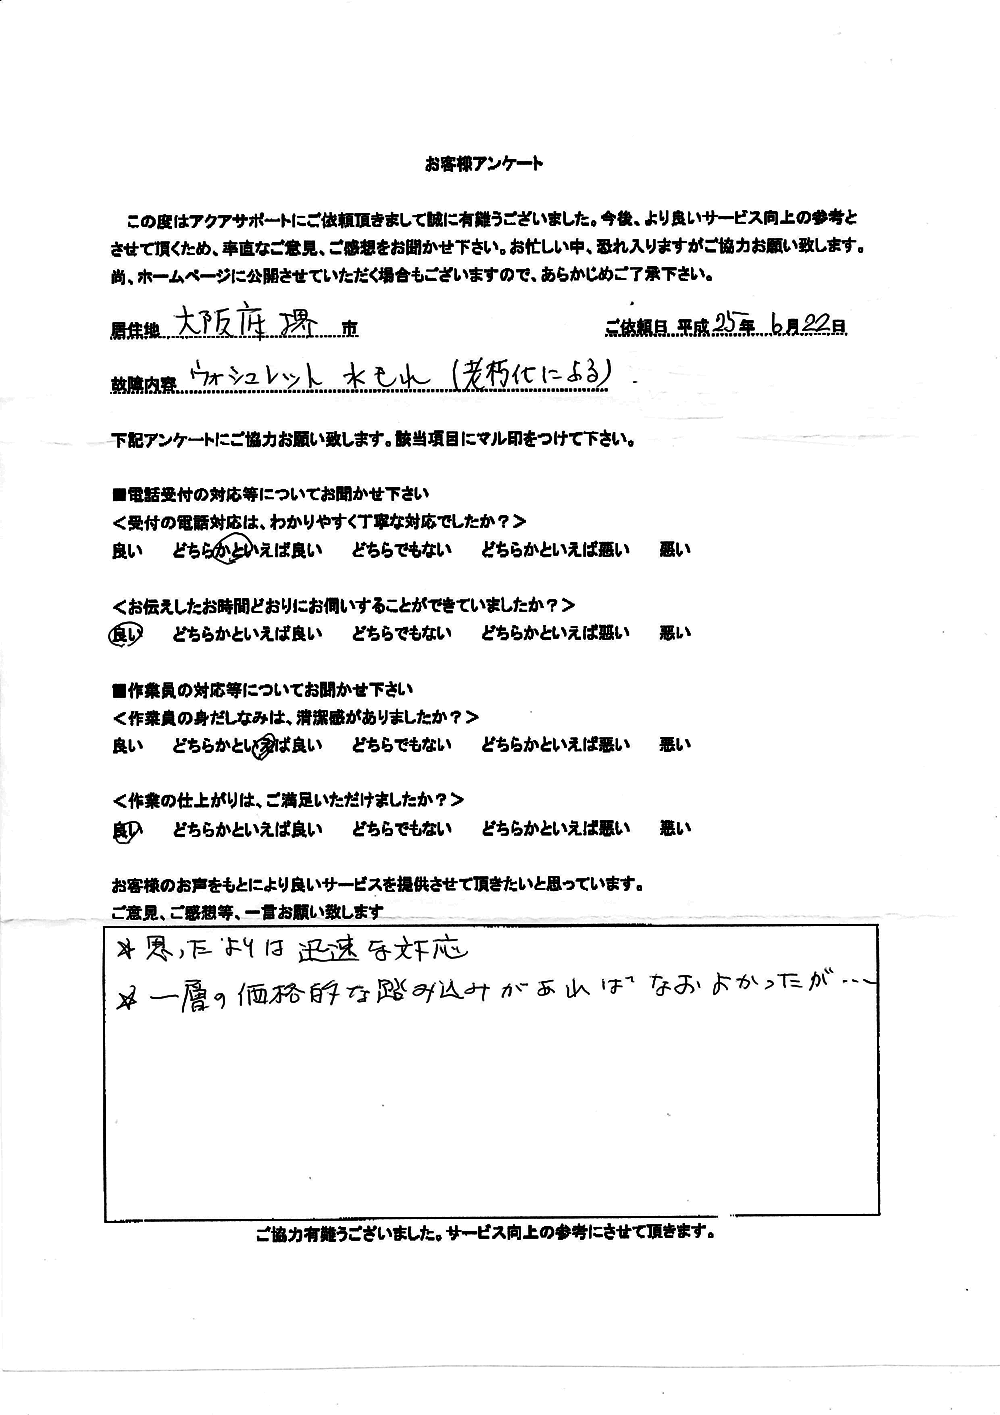 お客様アンケート
この度はアクアサポートにご依頼頂きまして誠に有難うございました。今後、より良いサービス向上の参考と
させて頂くため、率直なご意見、ご感想をお聞かせ下さい。お忙しい中、恐れ入りますがご協力お願い致します。
尚、ホームページに公開させていただく場合もございますので、あらかじめご了承下さい。
居住地 大阪府 堺 市 ご依頼日 平成 25年 6月 22日
故障内容 ウォシュレット 水もれ (老朽化による)
下記アンケートにご協力お願い致します。該当項目にマル印をつけて下さい。
■電話受付の対応等についてお聞かせ下さい
＜受付の電話対応は、わかりやすく丁寧な対応でしたか？＞
良い どちらかといえば良い どちらでもない どちらかといえば悪い 悪い
＜お伝えしたお時間どおりにお伺いすることができていましたか？＞
良い どちらかといえば良い どちらでもない どちらかといえば悪い 悪い
■作業員の対応等についてお聞かせ下さい
＜作業員の身だしなみは、清潔感がありましたか？＞
良い どちらかといえば良い どちらでもない どちらかといえば悪い 悪い
＜作業の仕上がりは、ご満足いただけましたか？＞
良い どちらかといえば良い どちらでもない どちらかといえば悪い 悪い
お客様のお声をもとにより良いサービスを提供させて頂きたいと思っています。
ご意見、ご感想等、一言お願い致します
☆ 思ったよりは 迅速な対応
☆ 一層の価格的な踏み込みがあればなおよかったが・・・
ご協力有難うございました。サービス向上の参考にさせて頂きます。